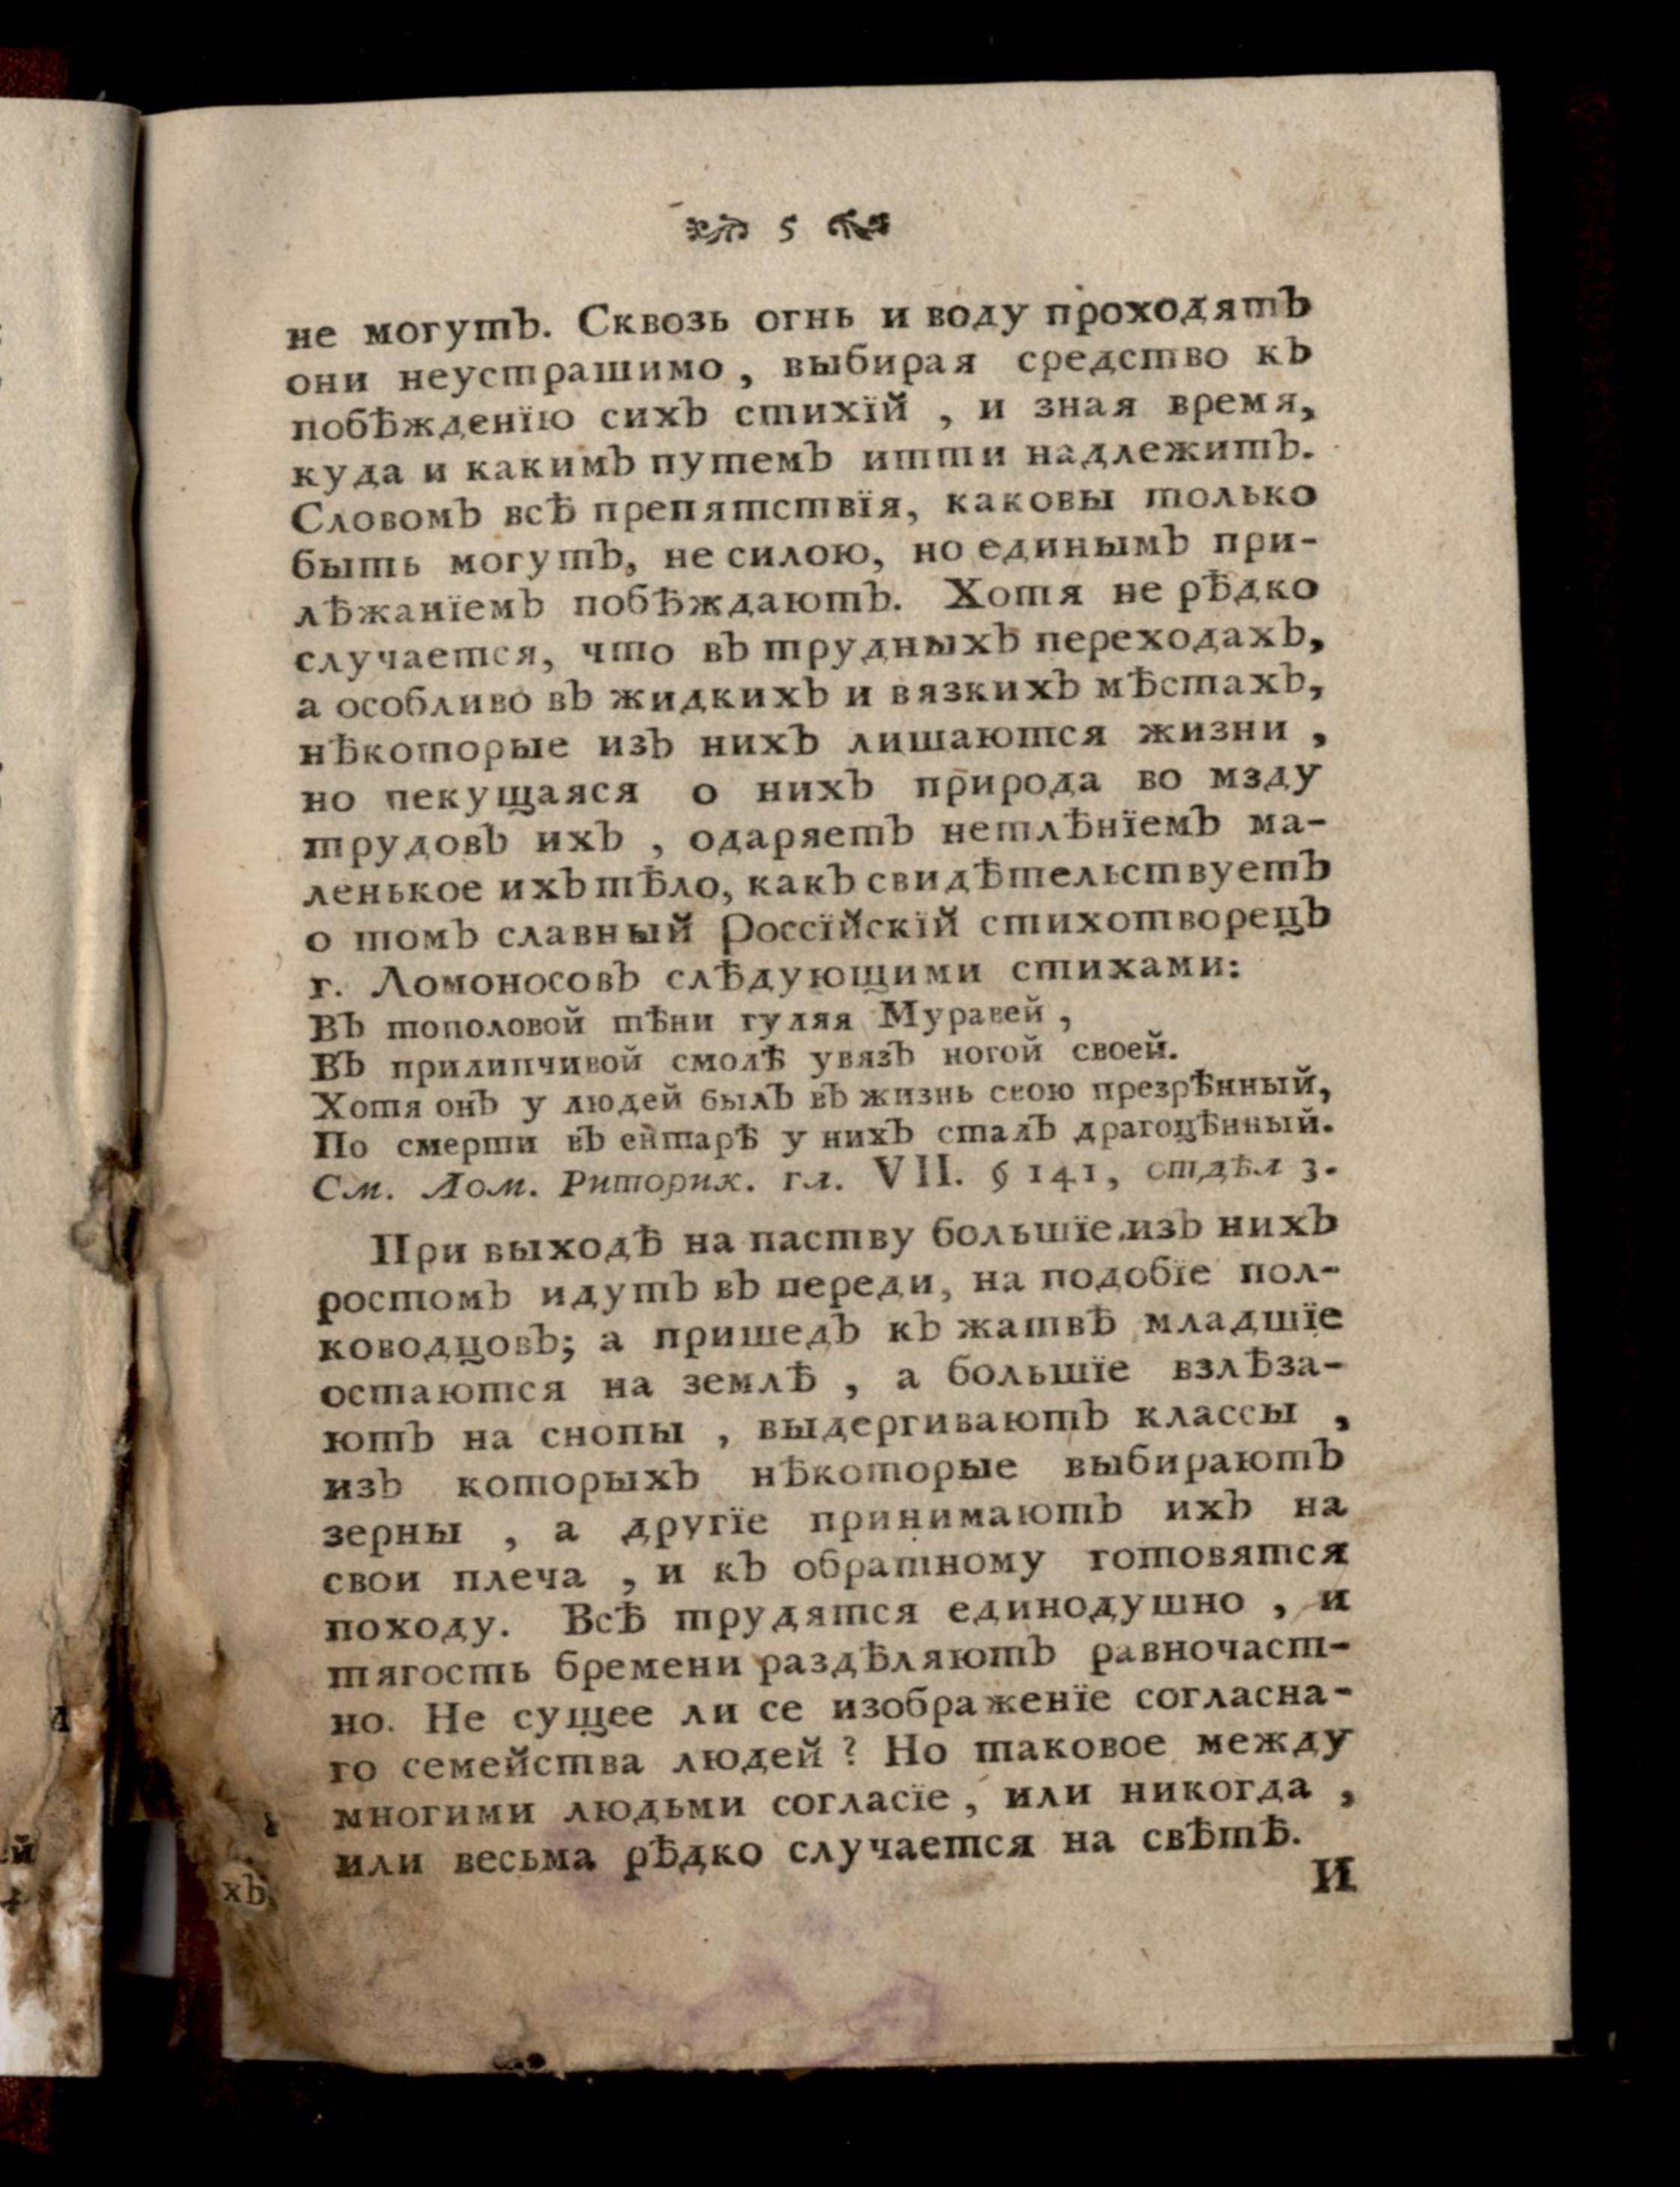 5
не могутъ. Сквозь огнь и воду проходятъ
они неустрашимо, выбирая средство къ
побѣжденїю сихъ стихїй, и зная время,
куда и какимъ путемъ итти надлежитъ.
Словомъ всѣ препятствїя, каковы только
быть могутъ, не силою, но единымъ при-
лѣжанїемъ побѣждаютъ. Хотя не рѣдко
случается, что въ трудныхъ переходахъ,
а особливо въ жидкихъ и вязкихъ мѣстахъ,
нѣкоторые изъ нихъ лишаются жизни,
но пекущаяся о нихъ природа во мзду
трудовъ ихъ, одаряетъ нетлѣнїемъ ма-
ленькое ихъ тѣло, какъ свидѣтельствуетъ
о томъ славный Россїйскїй стихотворецъ
г. Ломоносовъ слѣдующими стихами:
Въ тополовой тѣни гуляя Муравей,
Въ прилипчивой смолѣ увязъ ногой своей.
Хотя онъ у людей былъ въ жизнь свою презрѣнный,
По смерти въ ентарѣ у нихъ сталъ драгоцѣнный.
См. Лом. Риторик. гл. VII. § 141, отдѣл 3.
При выходѣ на паству большїе изъ нихъ
ростомъ идутъ въ переди, на подобїе пол-
ководцовъ; а пришедъ къ жатвѣ младшїе
остаются на землѣ, а большїе взлѣза-
ютъ на снопы, выдергиваютъ классы,
изъ которыхъ нѣкоторые выбираютъ
зерны, а другїе принимаютъ ихъ на
свои плеча, и къ обратному готовятся
походу. Всѣ трудятся единодушно, и
тягость бремени раздѣляютъ равночаст-
но. Не сущее ли се изображенїе согласна-
го семейства людей? Но таковое между
многими людьми согласїе, или никогда,
или весьма рѣдко случается на свѣтѣ.
И
хъ